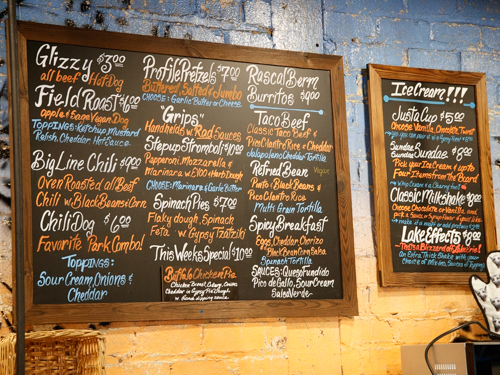 Glizzy $3.00
all beef HotDog
Field Roast $6.00
Apple & Sage Vegan Dog
TOPPINGS: Ketchup, Mustard
Relish, Cheddar, Hot Sauce
Big Line Chili $9.00
Oven Roasted all Beef
Chili w/ Black Beans & Corn
Chili Dog $6.00
Favorite Park Combo!
TOPPINGS:
Sour Cream, Onions &
Cheddar
Profile Pretzels $7.00
Buttered, Salted & Jumbo
CHOOSE: Garlic Butter or Cheese
"Grips"
Handhelds w/ Rad Sauces
Stepup Stromboli $7.00
Papperoni, Mozzarella &
Marinara
CHOOSE: Marinara & Garlic Butter
Spinach Pies $7.00
Flaky dough, Spinach
Feta w/ Gypsy Tzatziki
This Weeks Special $10.00
Buffalo Chicken Pza
Chicken Breast, Celery, Onions
w/ Ranch dipping sauce
Rascal Berm
Burritos $9.00
Taco Beef
Classic Taco Beef &
Pico Cilantro Rice & Cheddar
Jalapeño Cheddar Tortilla
Refried Bean Vegan
Pinto & Black Beans &
Pico Cilantro Rice
Multi Grain Tortilla
Spicy Breakfast
Eggs, Cheddar, Chorizo
Black Bean Corn Salsa
Spinach Tortilla
SAUCES: Queso Fundido
Pico de Gallo, Sour Cream
Salsa Verde
Ice Cream!!!
Just a Cup $5.00
Choose Vanilla, Chocolate, Twist
Sundae $8.00
Pick your Ice Cream & up to
Four Items from the Barn
Classic Milkshake $7.00
Choose Chocolate or Vanilla, and
pick a Sauce or Syrup
Lake Effects $8.00
This is a Blizzard
An Extra Thick Shake with your
Choice of Mix-ins, Sauces or Toppings